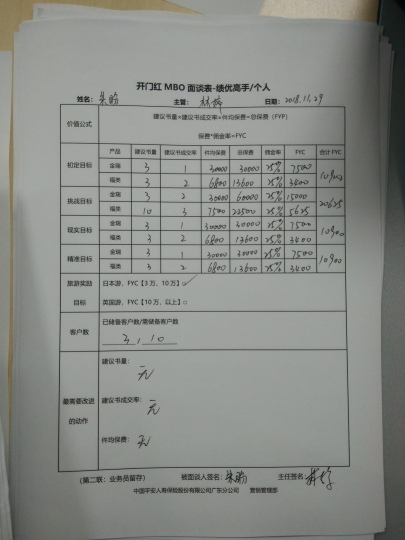 开门红 MBO 面谈表-绩优高手/个人
姓名: 主管: 日期: 2018.11.29
价值公式 建议书量×建议书成交率×件均保费=总保费 (FYP)
保费*佣金率=FYC
产品 建议书量 建议书成交率 件均保费 总保费 佣金率 FYC 合计 FYC
初定目标 金瑞 3 1 30000 30000 25% 7500 10900
福类 3 2 6800 13600 25% 3400
挑战目标 金瑞 3 2 30000 60000 25% 15000 20625
福类 10 3 7500 22500 25% 5625
现实目标 金瑞 3 1 30000 30000 25% 7500 10900
福类 3 2 6800 13600 25% 3400
精准目标 金瑞 3 1 30000 30000 25% 7500 10900
福类 3 2 6800 13600 25% 3400
旅游奖励 日本游, FYC【3 万, 10 万】□ ✓
目标 英国游, FYC【10 万, 以上】□
客户数 已储备客户数/需储备客户数
3, 10
最需要改进的动作
建议书量:
无
建议书成交率:
无
件均保费:
无
(第二联: 业务员留存) 被面谈人签名: 主任签名:
中国平安人寿保险股份有限公司广东分公司 营销管理部